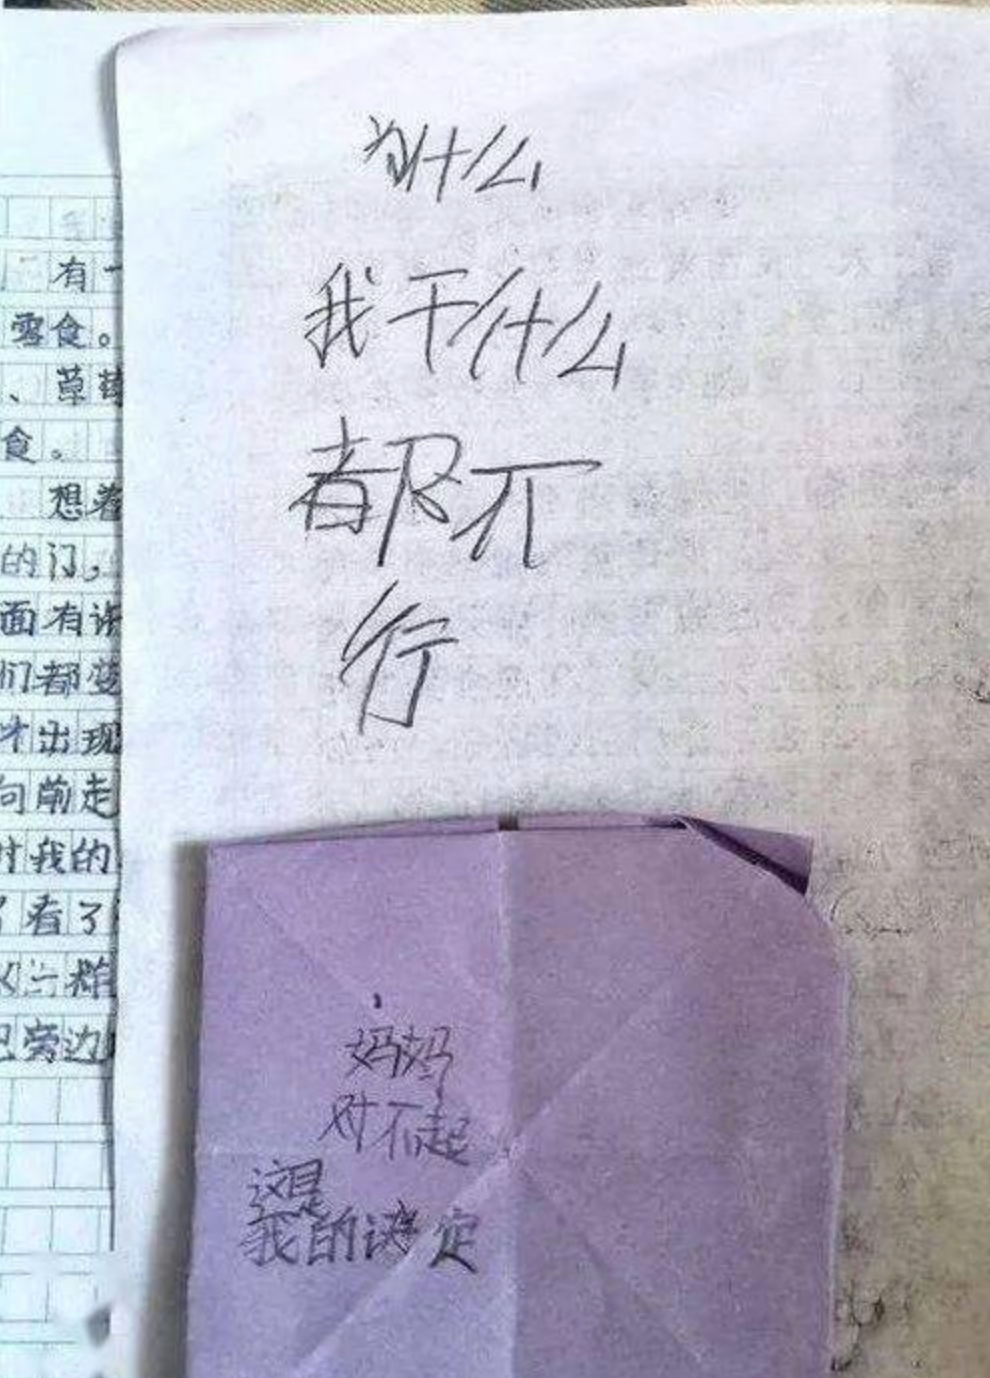 有一
零食。
、草莓
食。
想着
的门，
面有许
们都变
才出现
向前走
时我的
了看了
旁边
为什么
我干什么
都不
行
妈妈
对不起
这是
我的决定